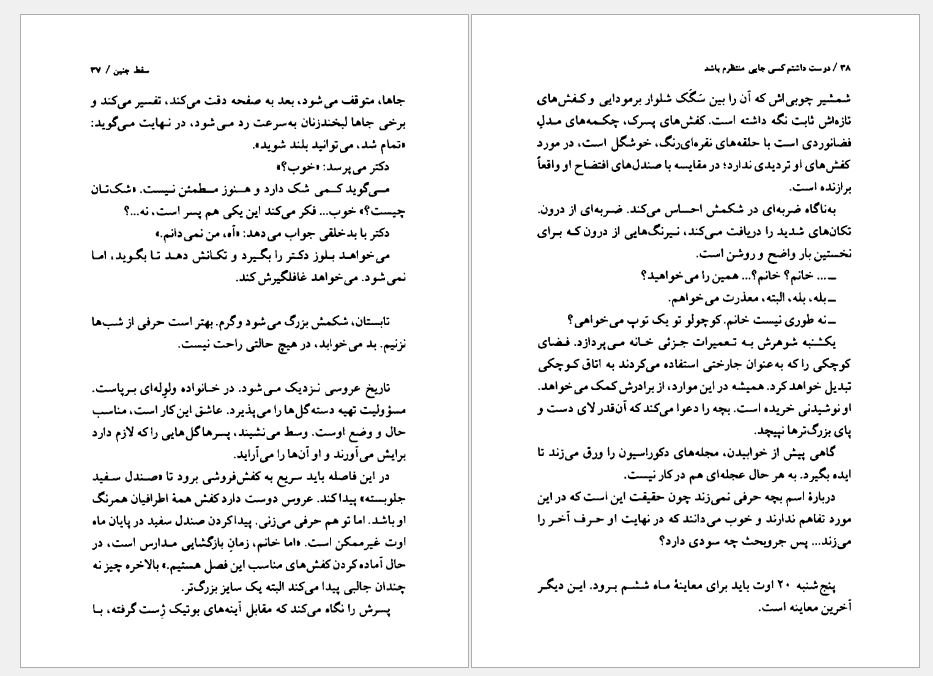 سقط جنین / ۳۷
جاها، متوقف می‌شود، بعد به صفحه دقت می‌کند، تفسیر می‌کند و
برخی جاها لبخندزنان به‌سرعت رد می‌شود، در نهایت می‌گوید:
«تمام شد، می‌توانید بلند شوید».
دکتر می‌پرسد: «خوب؟»
می‌گوید کمی شک دارد و هنوز مطمئن نیست. «شک‌تان
چیست؟» خوب... فکر می‌کند این یکی هم پسر است، نه...؟
دکتر با بدخلقی جواب می‌دهد: «آه، من نمی‌دانم.»
می‌خواهد بلوز دکتر را بگیرد و تکانش دهد تا بگوید، اما
نمی‌شود. می‌خواهد غافلگیرش کند.
تابستان، شکمش بزرگ می‌شود و گرم. بهتر است حرفی از شب‌ها
نزنیم. بد می‌خوابد، در هیچ حالتی راحت نیست.
تاریخ عروسی نزدیک می‌شود. در خانواده ولوله‌ای برپاست.
مسؤولیت تهیه دسته‌گل‌ها را می‌پذیرد. عاشق این کار است، مناسب
حال و وضع اوست. وسط می‌نشیند، پسرها گل‌هایی را که لازم دارد
برایش می‌آورند و او آن‌ها را می‌آراید.
در این فاصله باید سریع به کفش‌فروشی برود تا «صندل سفید
جلوبسته» پیدا کند. عروس دوست دارد کفش همهٔ اطرافیان همرنگ
او باشد. اما تو هم حرفی می‌زنی. پیدا کردن صندل سفید در پایان ماه
اوت غیرممکن است. «اما خانم، زمانِ بازگشایی مدارس است، در
حال آماده کردن کفش‌های مناسب این فصل هستیم.» بالاخره چیز نه
چندان جالبی پیدا می‌کند البته یک سایز بزرگ‌تر.
پسرش را نگاه می‌کند که مقابل آینه‌های بوتیک ژست گرفته، با
۳۸ / دوست داشتم کسی جایی منتظرم باشد
شمشیر چوبی‌اش که آن را بین سَگَک شلوار برمودایی و کفش‌های
تازه‌اش ثابت نگه داشته است. کفش‌های پسرک، چکمه‌های مدلِ
فضانوردی است با حلقه‌های نقره‌ای‌رنگ، خوشگل است، در مورد
کفش‌های او تردیدی ندارد؛ در مقایسه با صندل‌های افتضاح او واقعاً
برازنده است.
به‌ناگاه ضربه‌ای در شکمش احساس می‌کند. ضربه‌ای از درون.
تکان‌های شدید را دریافت می‌کند، نیرنگ‌هایی از درون که برای
نخستین بار واضح و روشن است.
ـ ... خانم؟ خانم؟... همین را می‌خواهید؟
ـ بله، بله، البته، معذرت می‌خواهم.
ـ نه طوری نیست خانم. کوچولو تو یک توپ می‌خواهی؟
یکشنبه شوهرش به تعمیرات جزئی خانه می‌پردازد. فضای
کوچکی را که به‌عنوان جارختی استفاده می‌کردند به اتاق کوچکی
تبدیل خواهد کرد. همیشه در این موارد، از برادرش کمک می‌خواهد.
او نوشیدنی خریده است. بچه را دعوا می‌کند که آن‌قدر لای دست و
پای بزرگ‌ترها نپیچد.
گاهی پیش از خوابیدن، مجله‌های دکوراسیون را ورق می‌زند تا
ایده بگیرد. به هر حال عجله‌ای هم در کار نیست.
دربارهٔ اسم بچه حرفی نمی‌زند چون حقیقت این است که در این
مورد تفاهم ندارند و خوب می‌دانند که در نهایت او حرف آخر را
می‌زند... پس جروبحث چه سودی دارد؟
پنج‌شنبه ۲۰ اوت باید برای معاینهٔ ماه ششم برود. این دیگر
آخرین معاینه است.